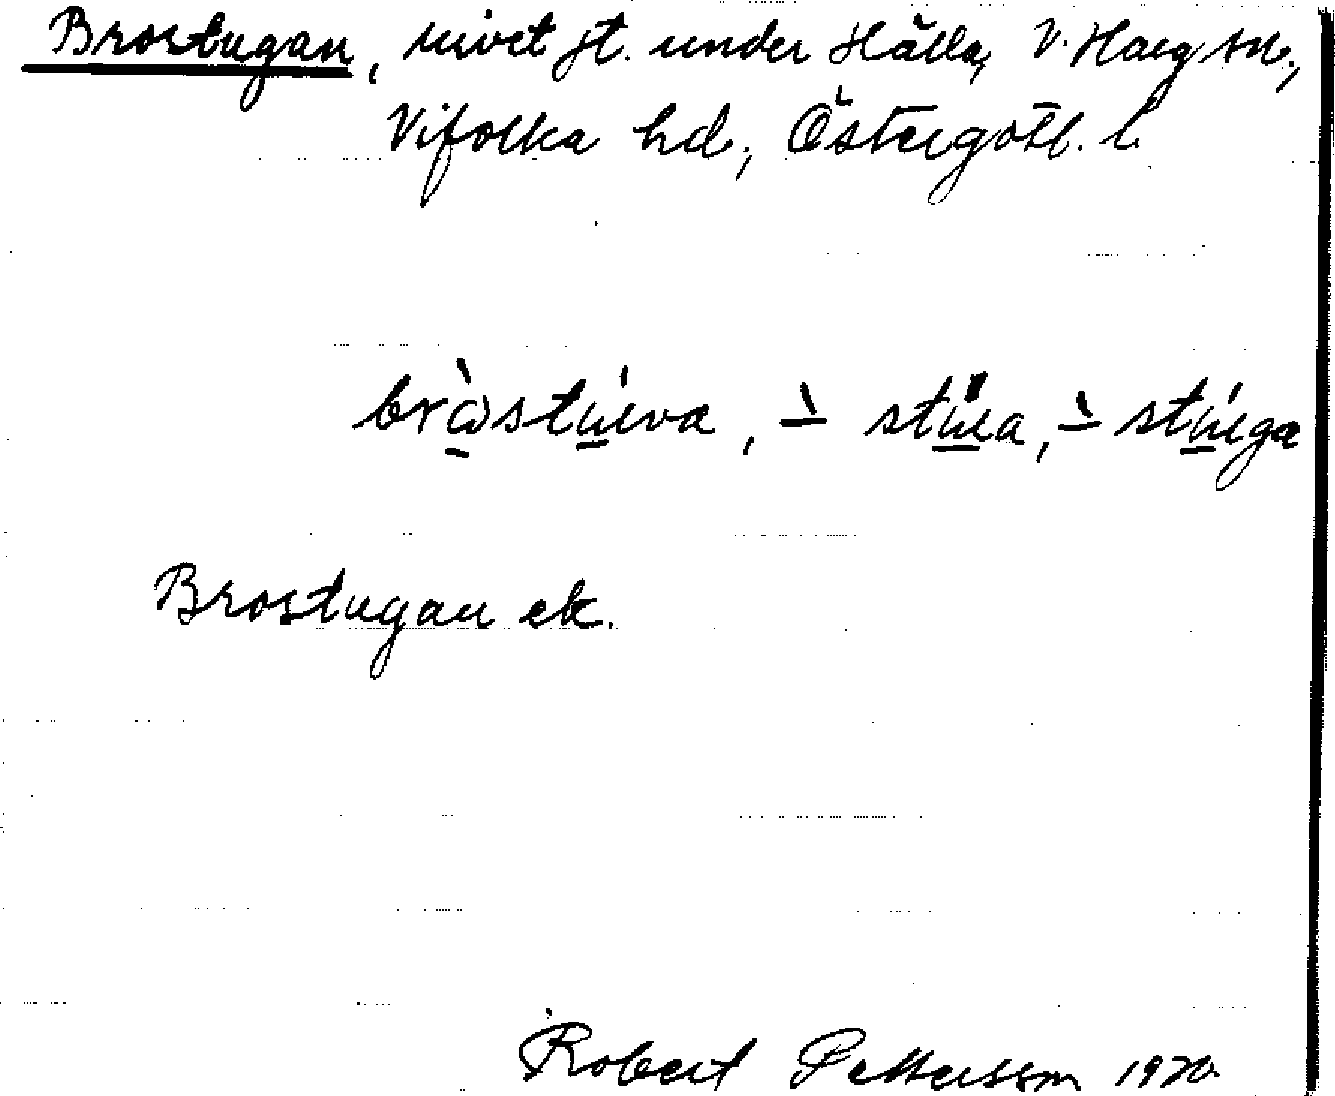 Brostugan, rivet st. under Hälla, V. Harg sn.,
Vifolka hd., Östergötl. l.
bròstúva, ∸ stúa, ∸ stúga
Brostugan ek.
Robert Pettersson 1920